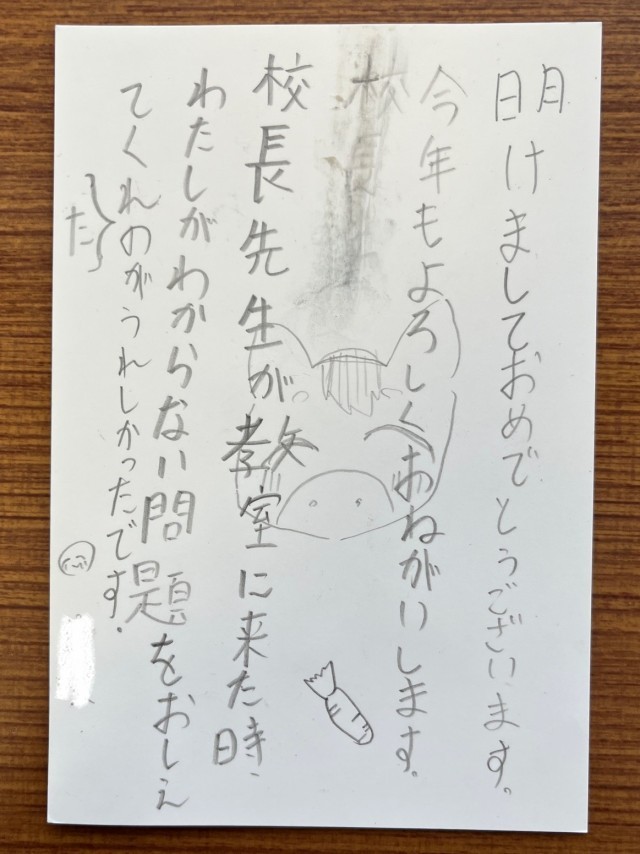 明けましておめでとうございます。
今年もよろしくおねがいします。
校長
校長先生が教室に来た時、
わたしがわからない問題をおしえ
てくれのがうれしかったです。
た